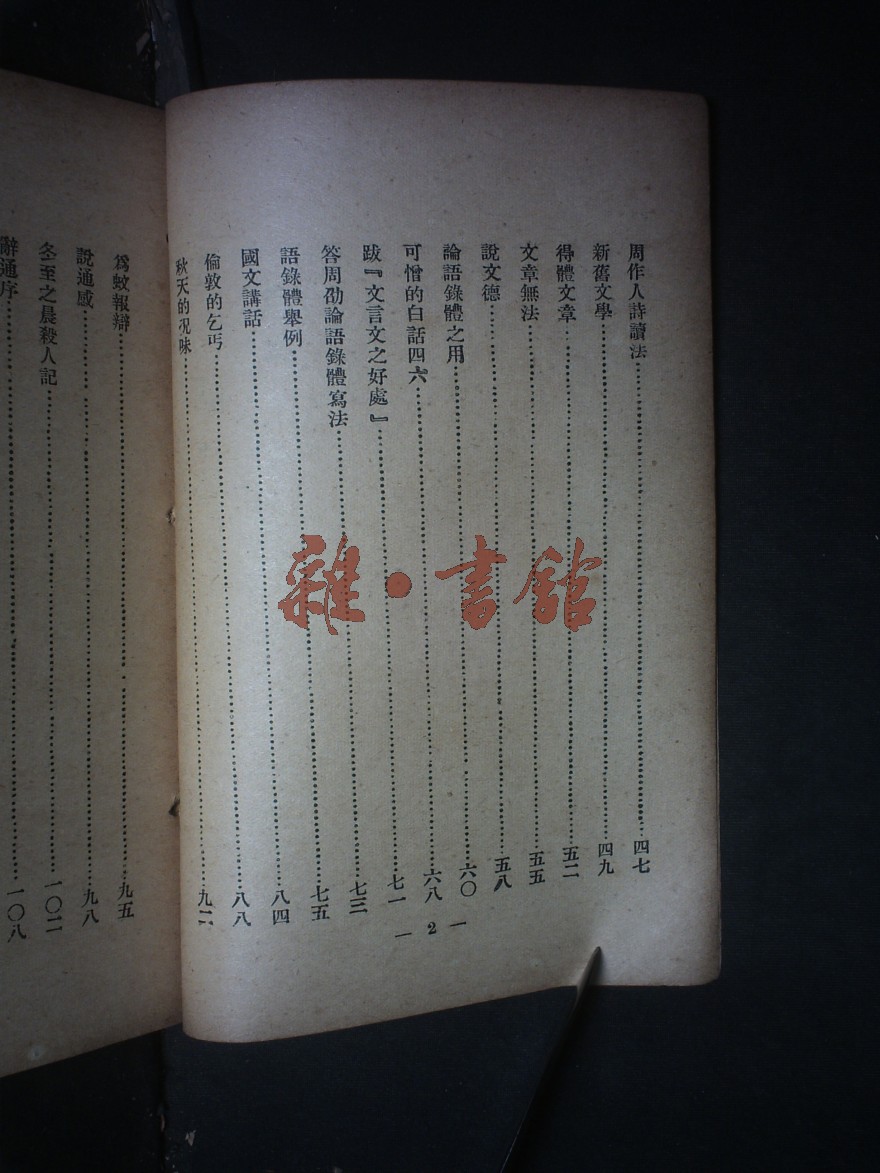 周作人詩讀法……四七
新舊文學……四九
得體文章……五二
文章無法……五五
說文德……五八
論語錄體之用……六〇
可憎的白話四六……六八
跋『文言文之好處』……七一
答周劭論語錄體寫法……七三
語錄體舉例……七五
國文講話……八四
倫敦的乞丐……八八
秋天的況味……九二
— 2 —
爲蚊報辯……九五
說通感……九八
冬至之晨殺人記……一〇二
辭通序……一〇八
雜·書館